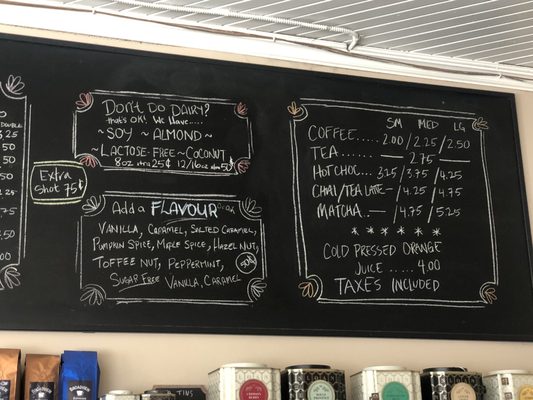 DOUBLE
Extra
Shot 75¢
Don't Do DAIRY?
that's OK! We have.....
~SOY ~ ALMOND ~
~LACTOSE-FREE ~ COCONUT
8oz xtra 25¢ 12/16oz xtra 50¢
Add a FLAVOUR
VANILLA, CARAMEL, SALTED CARAMEL,
PUMPKIN SPICE, MAPLE SPICE, HAZEL NUT,
TOFFEE NUT, PEPPERMINT,
SUGAR FREE VANILLA, CARAMEL
50¢
SM MED LG
COFFEE..... 2.00 / 2.25 / 2.50
TEA...... — 2.75 —
HOT CHOC... 3.25 / 3.75 / 4.25
CHAI/TEA LATTE — / 4.25 / 4.75
MATCHA.. — / 4.75 / 5.25
* * * * * *
COLD PRESSED ORANGE
JUICE ..... 4.00
TAXES INCLUDED